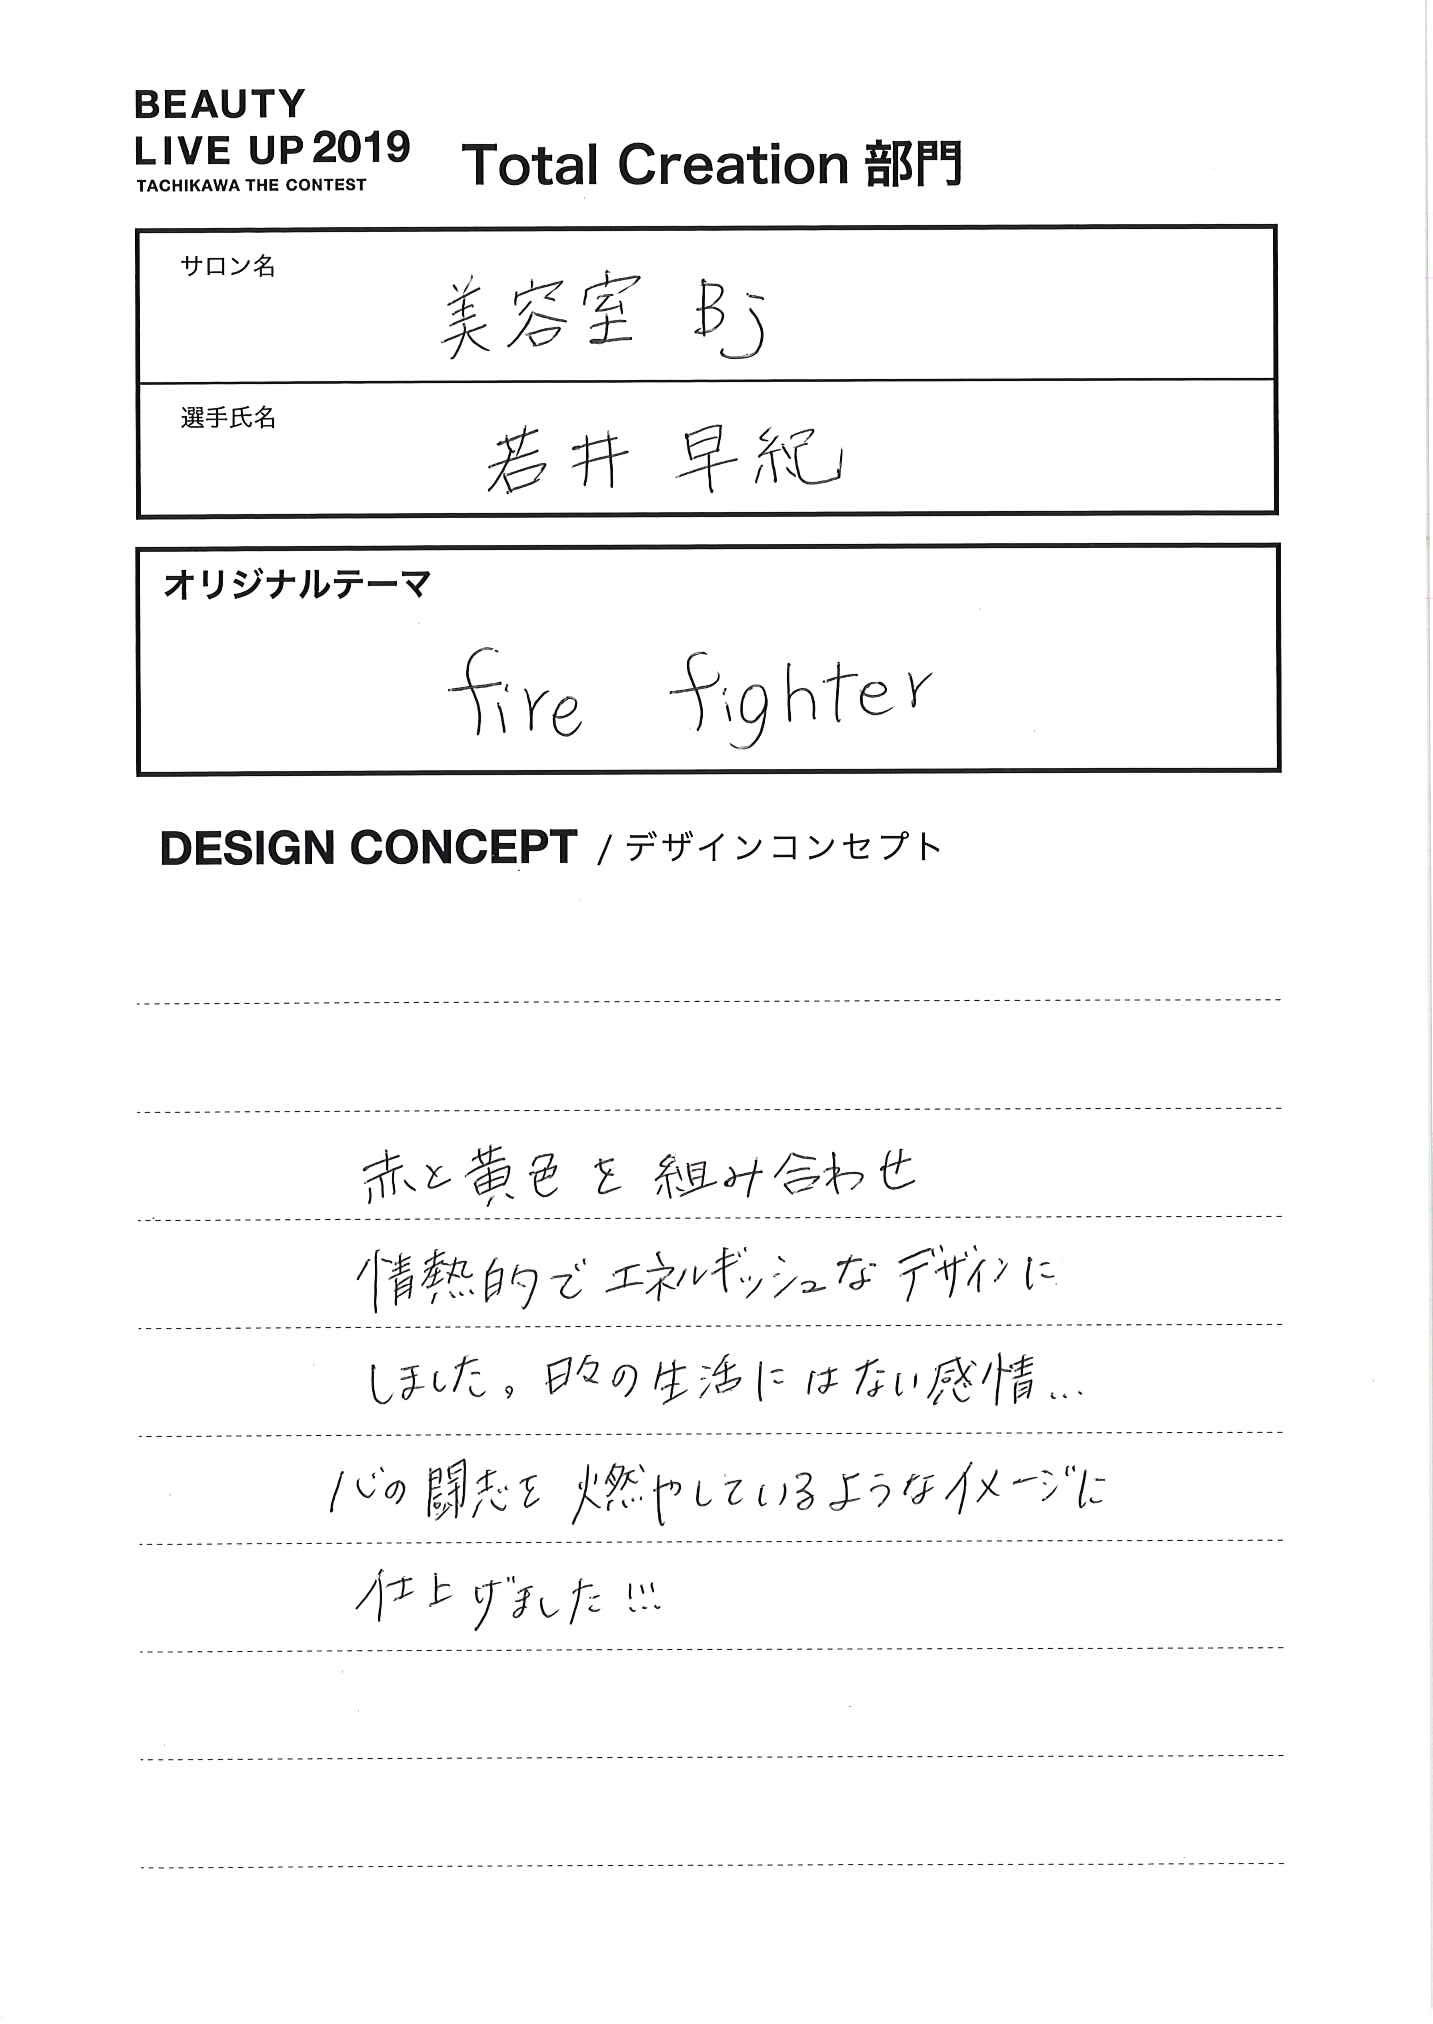 BEAUTY
LIVE UP 2019
TACHIKAWA THE CONTEST
Total Creation 部門
サロン名
美容室 Bj
選手氏名
若井 早紀
オリジナルテーマ
fire fighter
DESIGN CONCEPT / デザインコンセプト
赤と黄色を組み合わせ
情熱的でエネルギッシュなデザインに
しました。日々の生活にはない感情...
心の闘志を燃やしているようなイメージに
仕上げました!!!